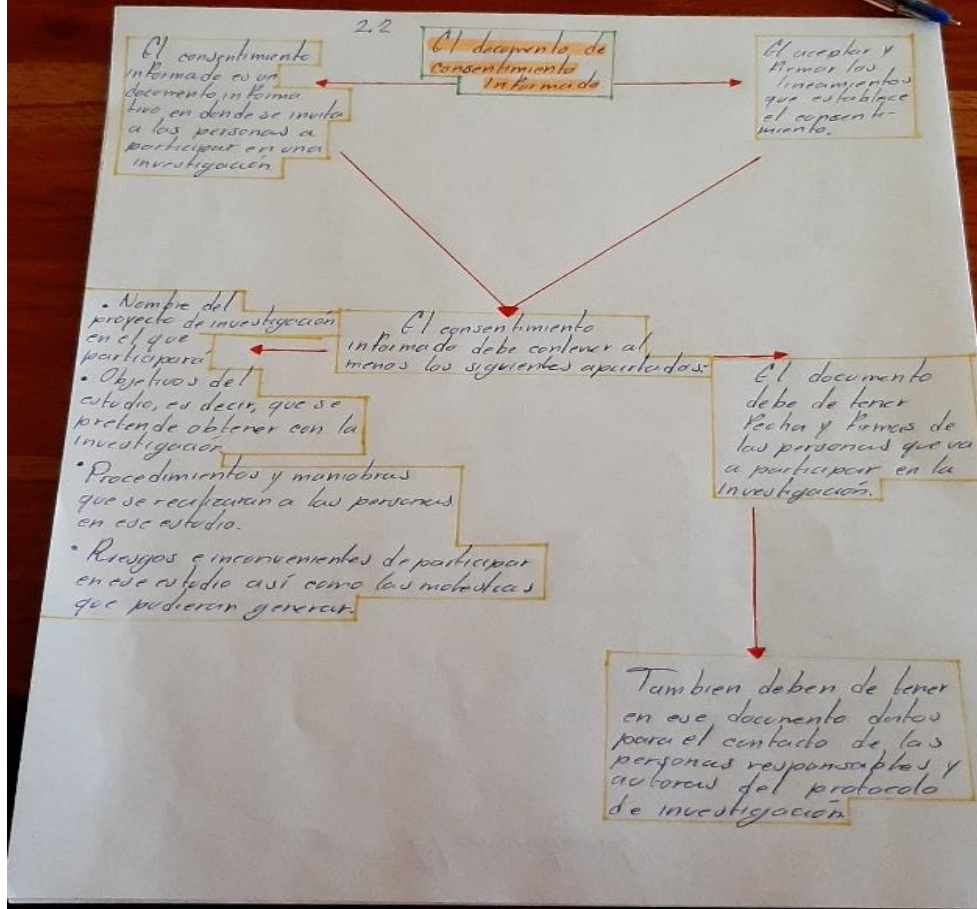 2.2
El documento de
consentimiento
informado.
El consentimiento
informado es un
documento informa
tivo en donde se invita
a las personas a
participar en una
investigación.
El aceptar y
firmar los
lineamientos
que establece
el consenti-
miento.
El consentimiento
informado debe contener al
menos los siguientes apartados:
• Nombre del
proyecto de investigación
en el que
participará
• Objetivos del
estudio, es decir, que se
pretende obtener con la
investigación
• Procedimientos y maniobras
que se realizaran a las personas
en ese estudio.
• Riesgos e inconvenientes de participar
en ese estudio así como las molestias
que pudieran generar.
El documento
debe de tener
fecha y firmas de
las personas que va
a participar en la
investigación.
Tambien deben de tener
en ese documento datos
para el contacto de las
personas responsables y
autoras del protocolo
de investigación